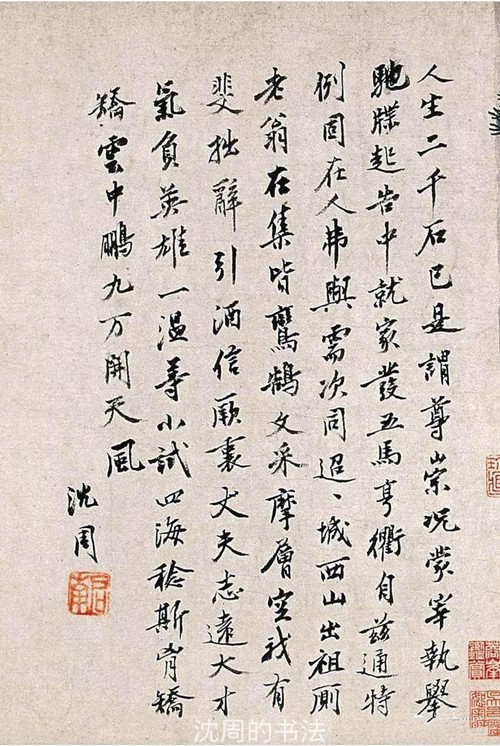 人生二千石已是謂尊崇况蒙宰執舉
馳牒起告中就家發五馬亨衢自兹通特
例固在人弗與需次同迢、城西山出祖厠
老翁在集皆鸞鶴文采摩層空我有
斐拙辭引酒信厥衷丈夫志遠大才
氣負英雄一溫尋小試四海稔斯肯矯
矯雲中鵬九万開天風
沈周
沈周的书法